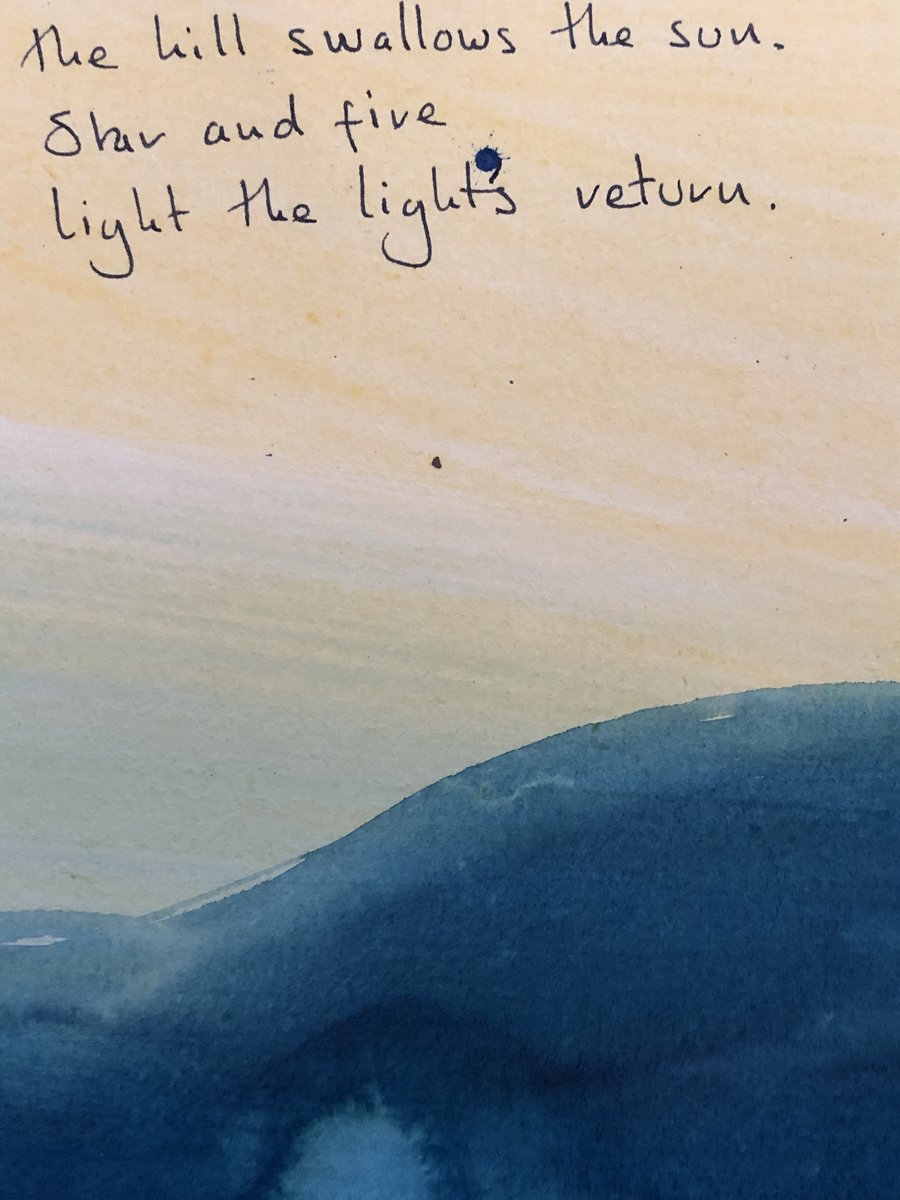 the hill swallows the sun.
Star and fire
light the light's return.